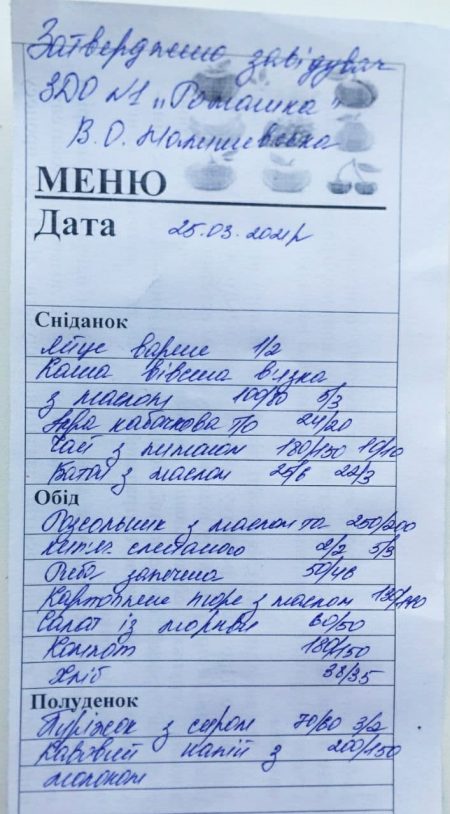 Затверджено завідувач
ЗДО №1 „Ромашка"
В.О.
МЕНЮ
Дата 25.03.2021р
Сніданок
Яйце варене 1/2
Каша вівсяна в'язка
з маслом 100/80 5/3
Ікра кабачкова т/о 24/20
Чай з лимоном 180/150 10/10
Батон з маслом 25/6 22/3
Обід
Розсольник з маслом та 250/200
сметаною 2/2 5/3
Риба запечена 50/46
Картопляне пюре з маслом 130/140
Салат із моркви 60/50
Компот 180/150
Хліб 38/35
Полуденок
Пиріжок з сиром 70/60 3/2
Кавовий напій з 200/150
молоком